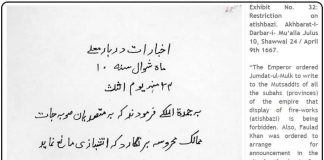 Exhibit No. 32:
Restriction on
atishbazi. Akhbarat-i-
Darbar-i- Mu'alla Julus
10, Shawwal 24 / April
9th 1667.
"The Emperor ordered
Jumdat-ul-Mulk to write
to the Mutsaddis of all
the subahs (provinces)
of the empire that
display of fire-works
(atishbazi) is being
forbidden. Also, Faulad
Khan was ordered to
arrange for
announcement in the
اخبارات دربار معلے
ماه شوال سنه ۱۰
۲۴ شهر يوم
بہ جمدة الملک فرمودند کہ بہ متصدیان صوبہ جات
ممالک محروسہ بر نگارد کہ آتشبازی مانع نمایو